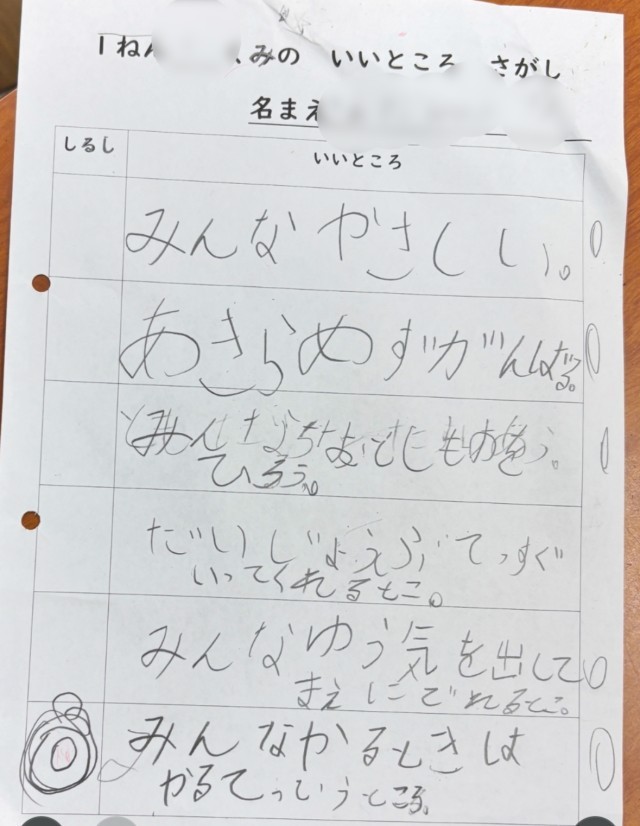 1ね みの いいところ さがし
名まえ
しるし いいところ
みんなやさしい。
あきらめずがんばる。
みんな
ひろう。
だいじょえぶてっすぐ
いってくれるとこ。
みんなゆう気を出して
まえにでれるとこ。
みんなかるときは
かるてっいうところ。